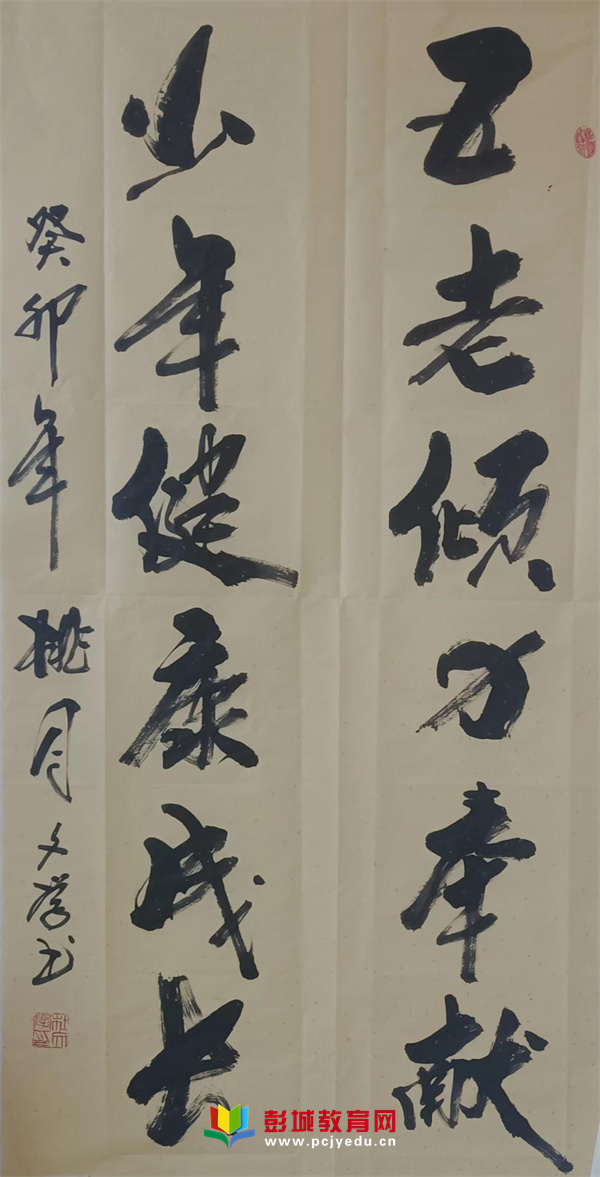 五老倾力奉献
少年健康成长
癸卯年桃月文学书
彭城教育网
www.pcjyedu.cn